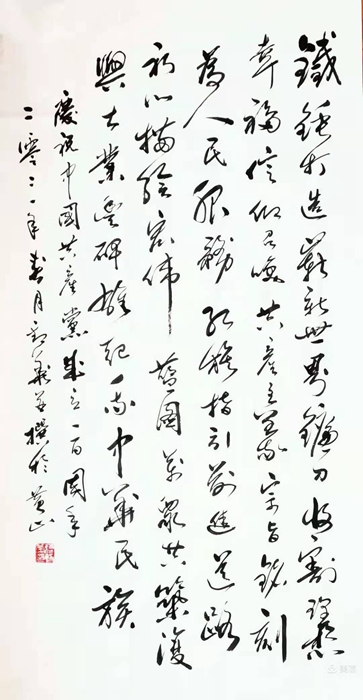 鐵錘打造嶄新世界鐮刀收割
幸福信仰召喚共產主義宗旨銘刻
為人民服務紅旗指引前進道路
初心描繪宏偉藍圖萬眾共築復
興大業豐碑雄起中華民族
慶祝中國共產黨成立一百周年
二零二一年春月撰於黃山